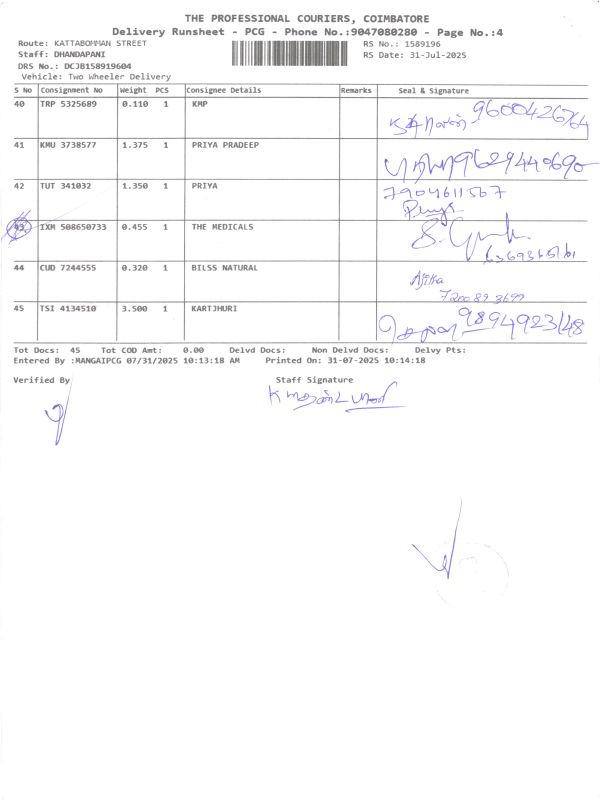 THE PROFESSIONAL COURIERS, COIMBATORE
Delivery Runsheet - PCG - Phone No.:9047080280 - Page No.:4
Route: KATTABOMMAN STREET
RS No.: 1589196
Staff: DHANDAPANI
RS Date: 31-Jul-2025
DRS No.: DCJB158919604
Vehicle: Two Wheeler Delivery
S No Consignment No Weight PCS Consignee Details Remarks Seal & Signature
40 TRP 5325689 0.110 1 KMP 9600426764
41 KMU 3738577 1.375 1 PRIYA PRADEEP 9629440690
42 TUT 341032 1.350 1 PRIYA 7904611567
43 IXM 508650733 0.455 1 THE MEDICALS
44 CUD 7244555 0.320 1 BILSS NATURAL
7200893699
45 TSI 4134510 3.500 1 KARTJHURI 9894923148
Tot Docs: 45 Tot COD Amt: 0.00 Delvd Docs: Non Delvd Docs: Delvy Pts:
Entered By :MANGAIPCG 07/31/2025 10:13:18 AM Printed On: 31-07-2025 10:14:18
Verified By Staff Signature